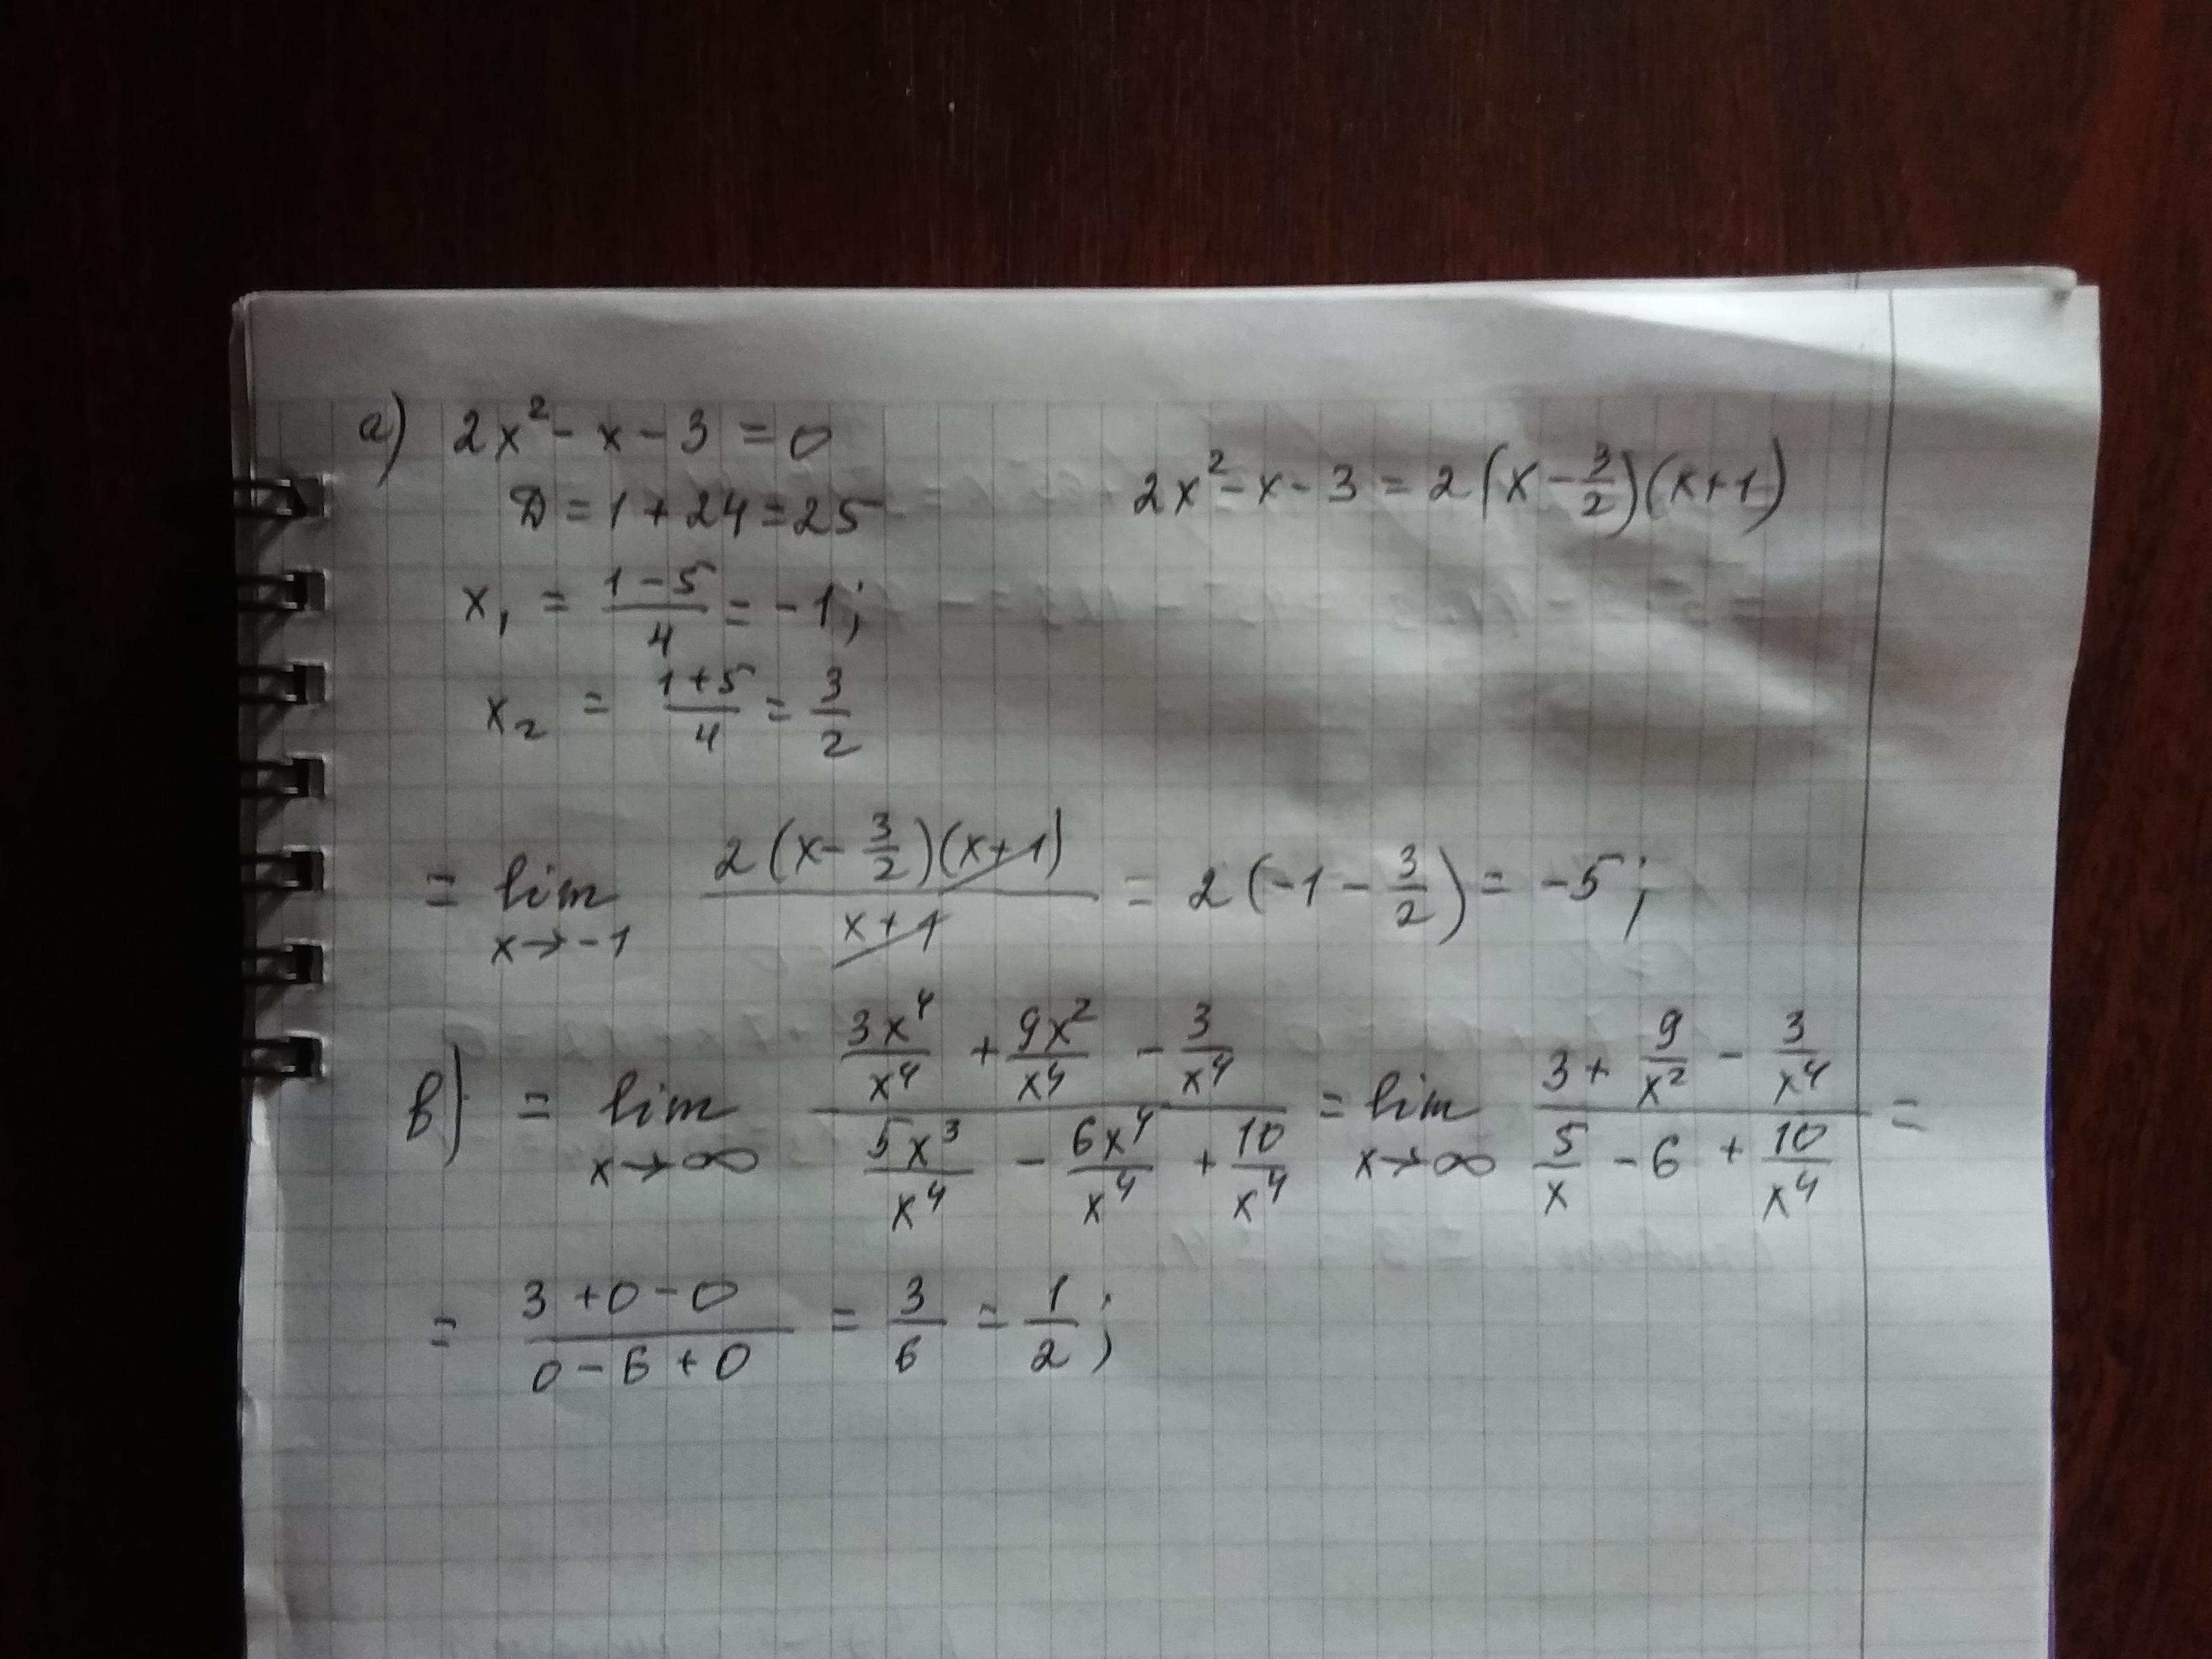 а) 2x² - x - 3 = 0
D = 1 + 24 = 25
2x² - x - 3 = 2(x - 3/2)(x+1)
x₁ = (1-5)/4 = -1;
x₂ = (1+5)/4 = 3/2
= lim x→-1 2(x - 3/2)(x+1)/(x+1) = 2(-1 - 3/2) = -5;
в) = lim x→∞ (3x⁴/x⁴ + 9x²/x⁴ - 3/x⁴)/(5x³/x⁴ - 6x⁴/x⁴ + 10/x⁴) = lim x→∞ (3 + 9/x² - 3/x⁴)/(5/x - 6 + 10/x⁴) =
= (3+0-0)/(0-6+0) = 3/6 = 1/2;